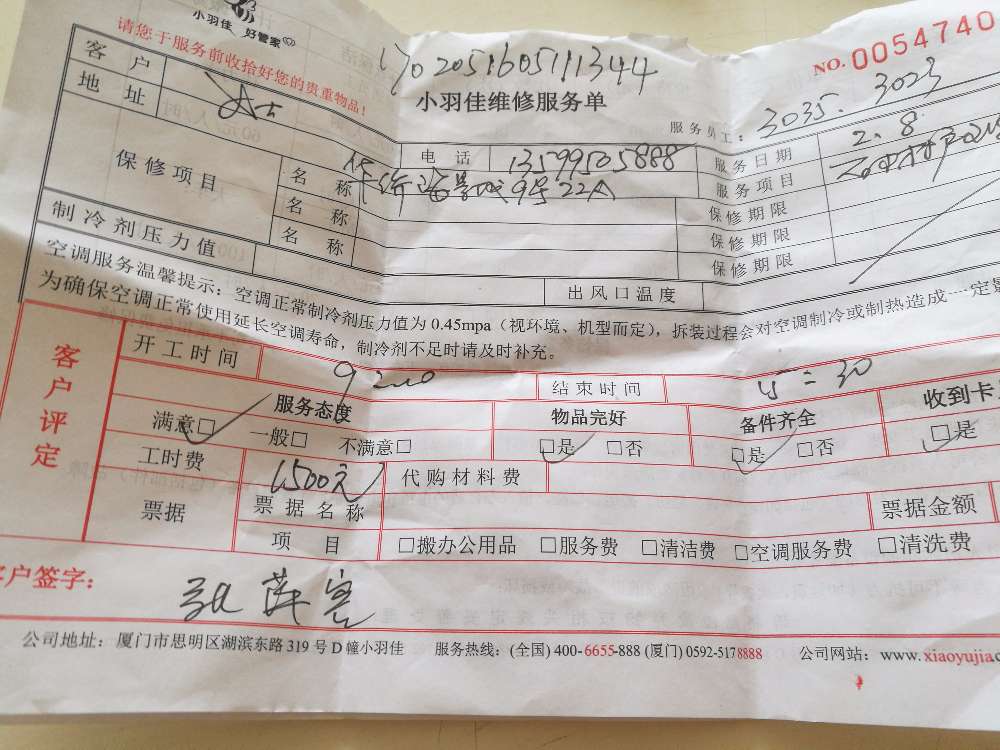 小羽佳 好管家
请您于服务前收拾好您的贵重物品!
NO. 0054740
小羽佳维修服务单
服务员工: 3035. 3023
客户
电话 13599505888
服务日期 2.8
地址
服务项目
保修项目
名称
保修期限
名称
保修期限
名称
保修期限
制冷剂压力值
出风口温度
空调服务温馨提示:空调正常制冷剂压力值为0.45mpa(视环境、机型而定),拆装过程会对空调制冷或制热造成一定影
为确保空调正常使用延长空调寿命,制冷剂不足时请及时补充。
客户评定
开工时间
结束时间
服务态度 物品完好 备件齐全 收到卡
满意□ 一般□ 不满意□ □是 □否 □是 □否 □是
工时费 1500元 代购材料费
票据 票据名称 票据金额
项目 □搬办公用品 □服务费 □清洁费 □空调服务费 □清洗费
客户签字:
公司地址:厦门市思明区湖滨东路319号D幢小羽佳 服务热线:(全国)400-6655-888 (厦门)0592-5178888 公司网站:www.xiaoyujia.c